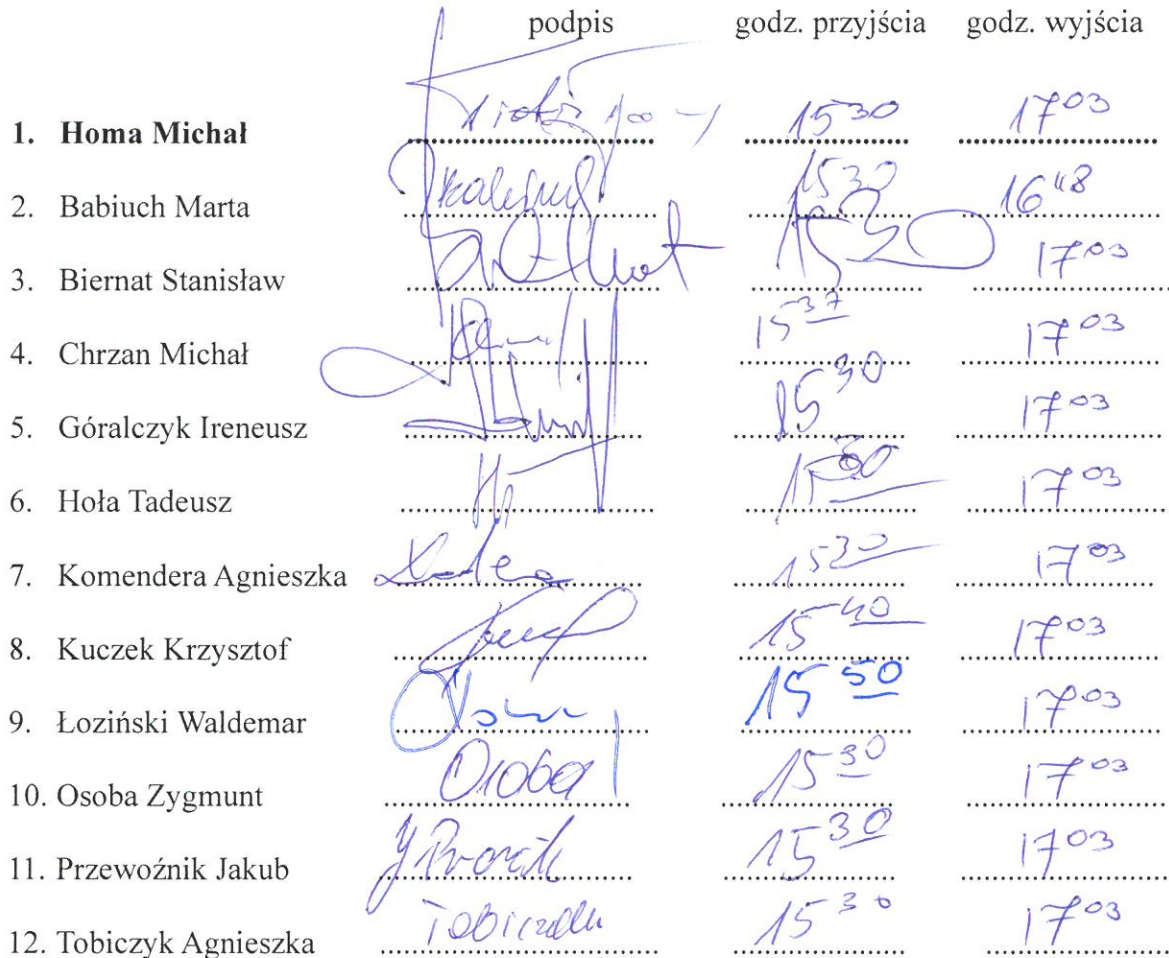 podpis godz. przyjścia godz. wyjścia
1. Homa Michał 15 30 17 03
2. Babiuch Marta 15 30 16 48
3. Biernat Stanisław 15 30 17 03
4. Chrzan Michał 15 37 17 03
5. Góralczyk Ireneusz 15 30 17 03
6. Hoła Tadeusz 15 30 17 03
7. Komendera Agnieszka 15 30 17 03
8. Kuczek Krzysztof 15 40 17 03
9. Łoziński Waldemar 15 50 17 03
10. Osoba Zygmunt Osoba 15 30 17 03
11. Przewoźnik Jakub 15 30 17 03
12. Tobiczyk Agnieszka 15 30 17 03